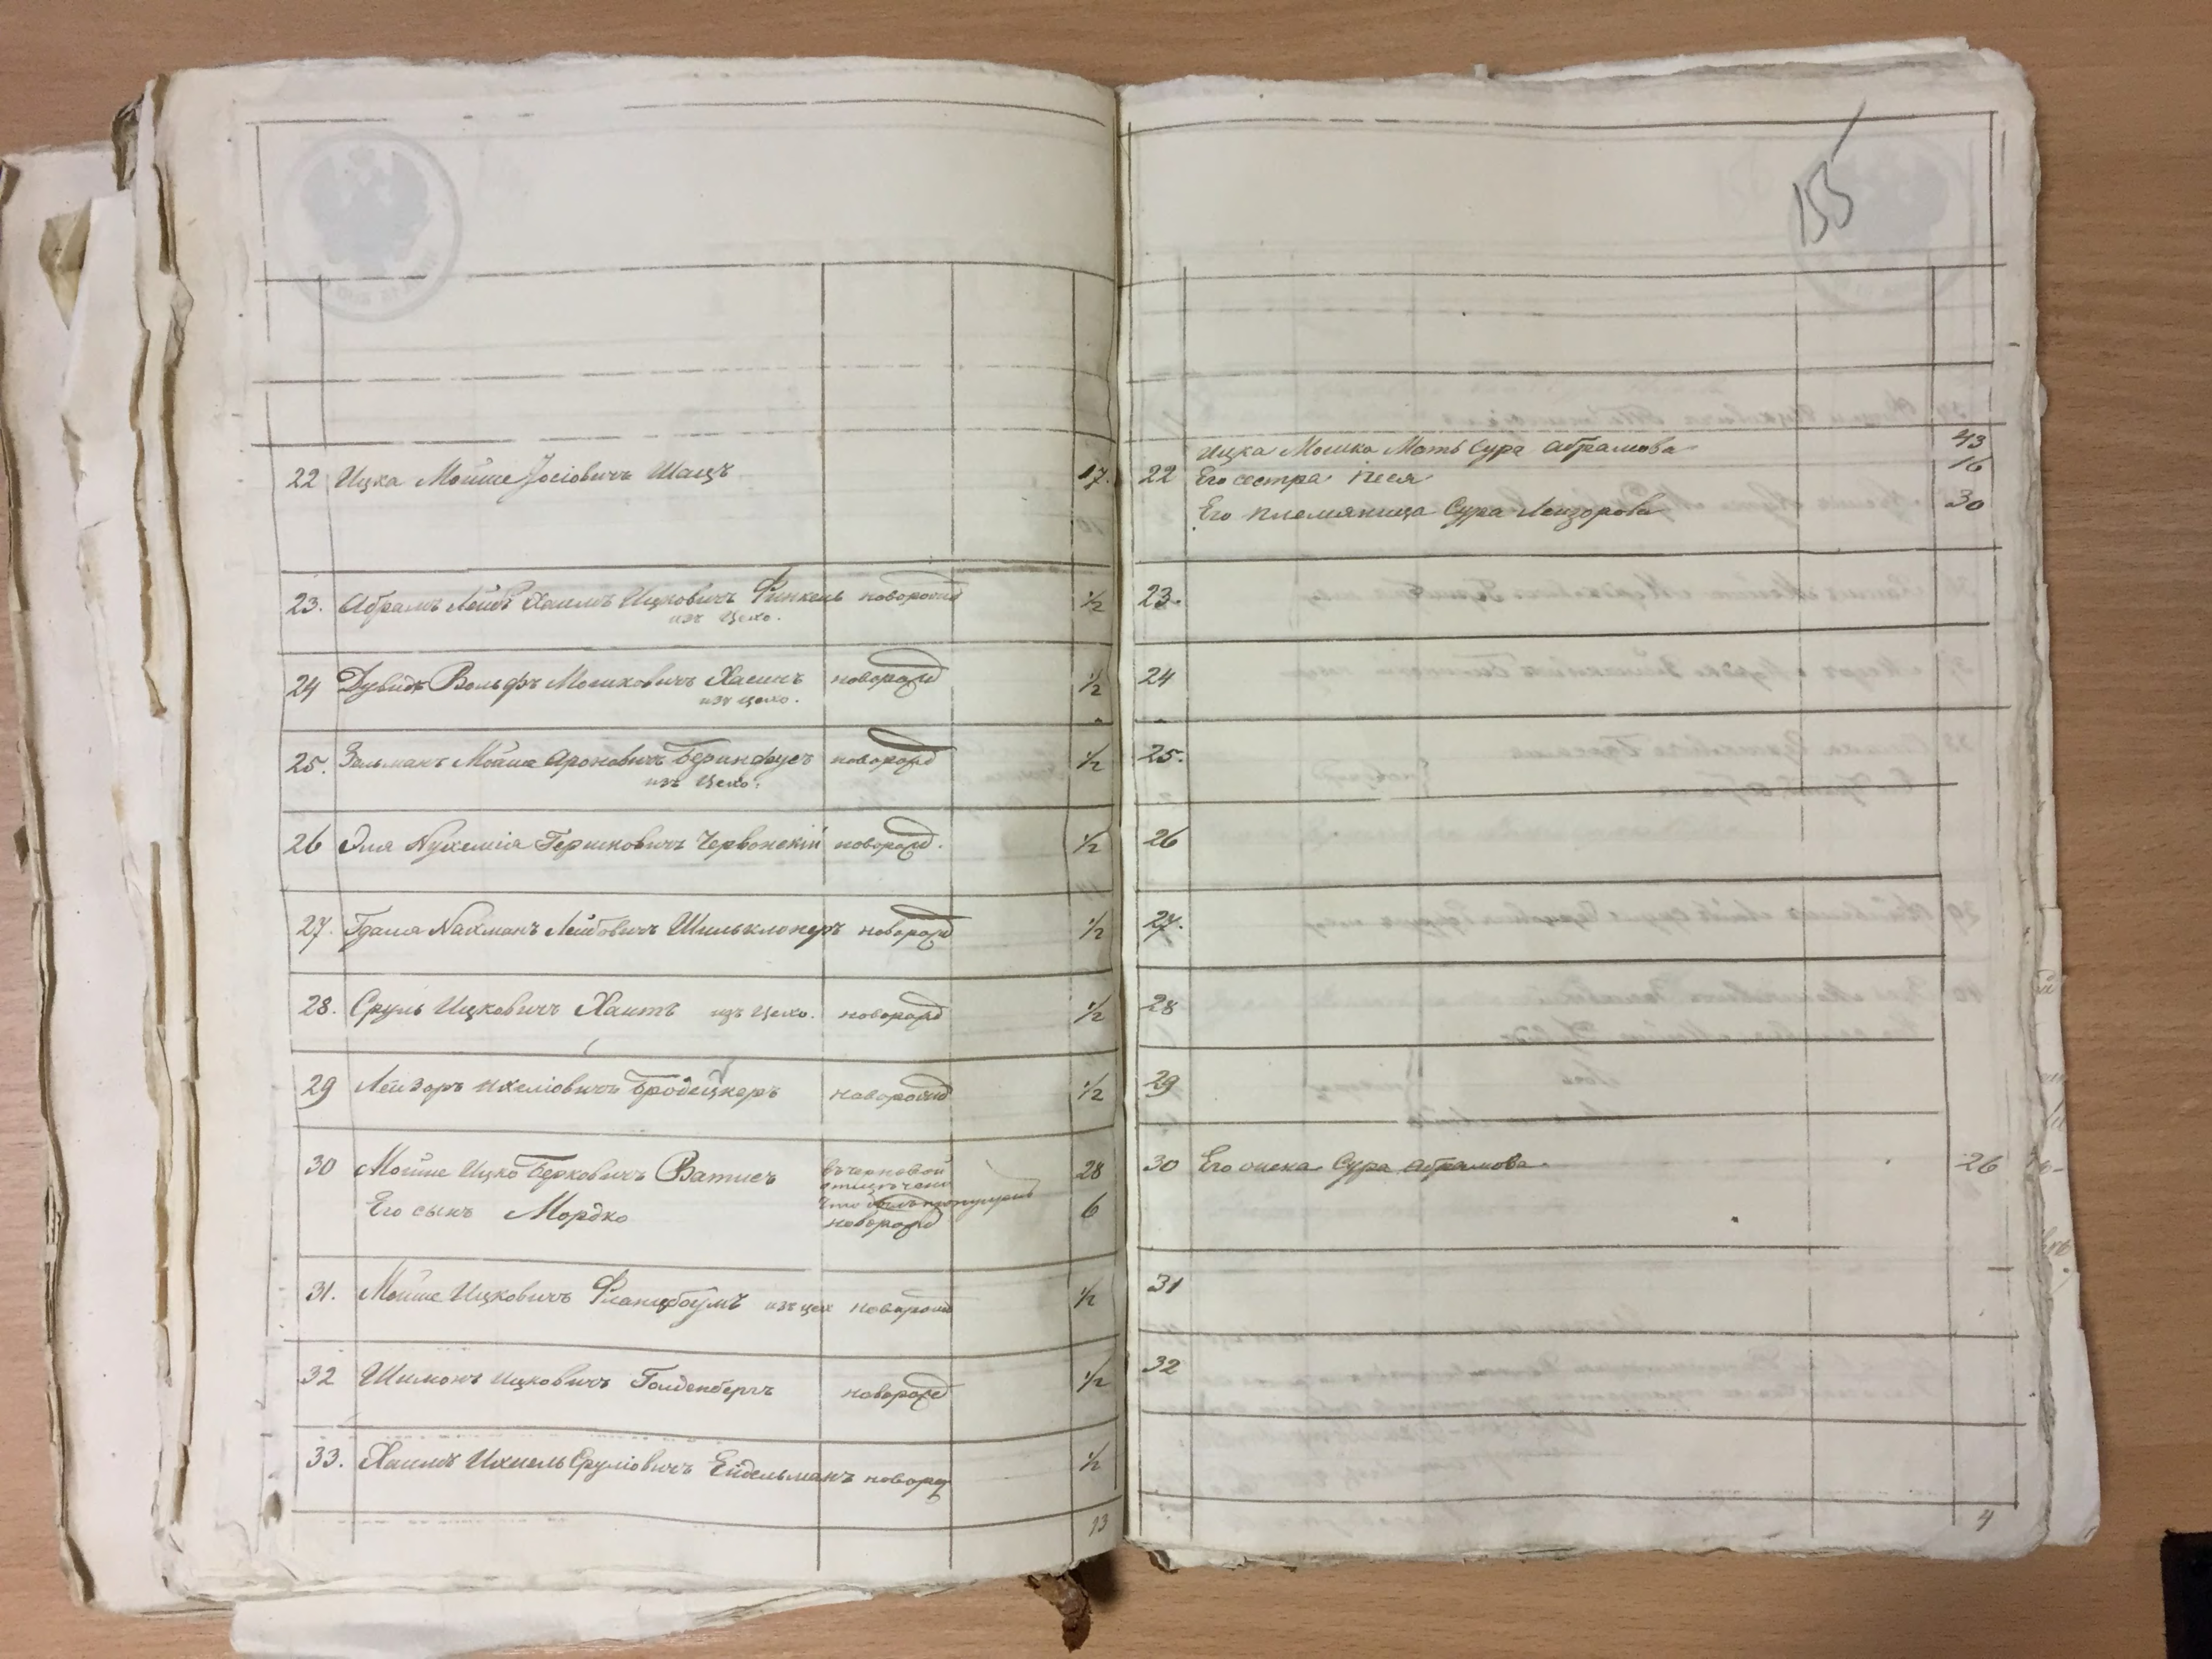 22 Ицка Мойше Іосіовичъ Шацъ 17.
23. Абрамъ Лейбъ Хаимъ Ицковичъ Финкель новорожд 1/2
изъ цехо.
24 Дувидъ Вольфъ Мошковичъ Хасинъ новорожд 1/2
изъ цехо.
25. Зельманъ Мойше Ароновичъ Беринфусъ новорожд 1/2
изъ цехо.
26 Эля Нухемія Гершковичъ Червонскій новорожд. 1/2
27. Гдаля Нахманъ Лейбовичъ Шильклоперъ новорожд 1/2
28. Сруль Ицковичъ Хаитъ изъ цехо. новорожд 1/2
29 Лейзоръ Ихеліовичъ Бродецкеръ новорожд 1/2
30 Мойше Ицко Берковичъ Ватисъ въ черновой 28
что былъ пропущенъ
Его сынъ Мордко новорожд 6
31. Мойше Ицковичъ Фланцбоумъ изъ цех новорожд 1/2
32 Шимонъ Ицковичъ Голденбергъ новорожд 1/2
33. Хаимъ Ихиель Сруліовичъ Ейдельманъ новорож 1/2
13
155
Ицка Мошка Мать Сура Абрамова 43
22 Его сестра Песя 16
Его племяница Сура Лейзорова 30
23.
24
25.
26
27.
28
29
30 Его жена Сура Абрамова. 26
31
32
4